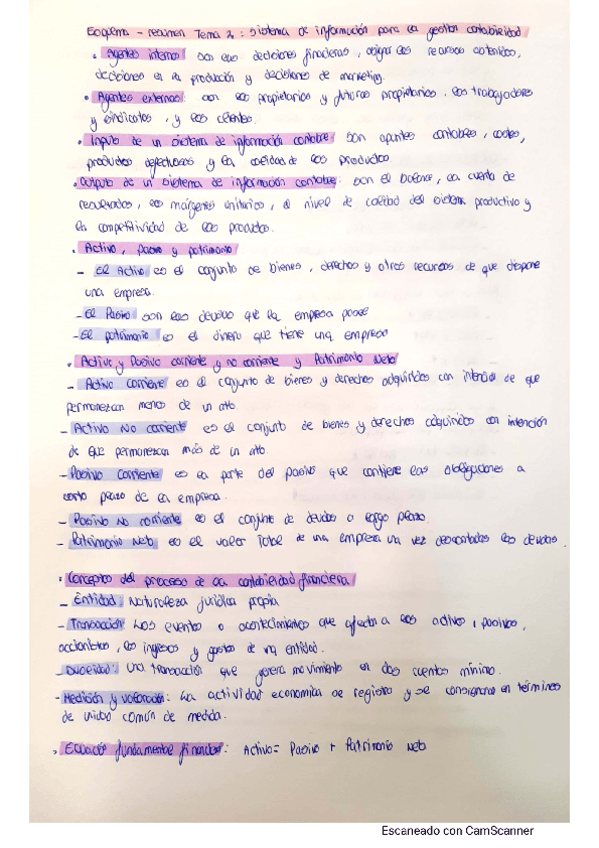 Esquema - resumen Tema 2: Sistema de información para la gestión contabilidad
· Agentes internos son sus decisiones financieras, asignar los recursos obtenidos,
decisiones en la producción y decisiones de marketing.
· Agentes externos: son los propietarios y futuros propietarios. los trabajadores
y sindicatos, y los clientes.
· Inputs de un sistema de información contable: son apuntes contables, costes,
productos defectuosos y la calidad de los productos
· Outputs de un sistema de información contable: son el balance, la cuenta de
resultados, los márgenes unitarios, el nivel de calidad del sistema productivo y
la competitividad de los productos.
· Activo, pasivo y patrimonio
- El Activo es el conjunto de bienes, derechos y otros recursos de que dispone
una empresa.
- El Pasivo son las deudas que la empresa posee
- El patrimonio es el dinero que tiene una empresa
· Activo y Pasivo corriente y no corriente y Patrimonio Neto
- Activo corriente es el conjunto de bienes y derechos adquiridos con intención de que
permanezcan menos de un año
- Activo No corriente es el conjunto de bienes y derechos adquiridos con intención
de que permanezcan más de un año.
- Pasivo Corriente es la parte del pasivo que contiene las obligaciones a
corto plazo de la empresa.
- Pasivo No corriente es el conjunto de deudas a largo plazo.
- Patrimonio Neto es el valor total de una empresa una vez descontadas las deudas.
· Conceptos del proceso de la contabilidad financiera
- Entidad: Naturaleza jurídica propia
- Transacción: Los eventos o acontecimientos que afectan a los activos, pasivos,
accionistas, los ingresos y gastos de una entidad.
- Dualidad: Una transacción que genera movimiento en dos cuentas mínimo.
- Medición y valoración: La actividad economica se registra y se consignaran en términos
de unidad común de medida.
· Ecuación fundamental financiera: Activo = Pasivo + Patrimonio Neto
Escaneado con CamScanner